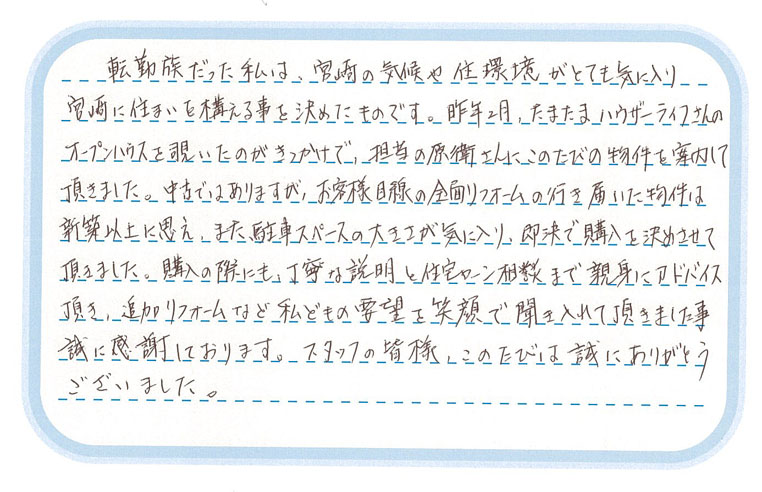 転勤族だった私は、宮崎の気候や住環境がとても気に入り
宮崎に住まいを構える事を決めたものです。昨年2月、たまたまハウザーライフさんの
オープンハウスを覗いたのがきっかけで、担当の原衛さんにこのたびの物件を案内して
頂きました。中古ではありますが、お客様目線の全面リフォームの行き届いた物件は
新築以上に思え、また駐車スペースの大きさが気に入り、即決で購入を決めさせて
頂きました。購入の際にも、丁寧な説明と住宅ローン相談まで親身にアドバイス
頂き、追加リフォームなど私どもの要望を笑顔で聞き入れて頂きました事
誠に感謝しております。スタッフの皆様、このたびは誠にありがとう
ございました。